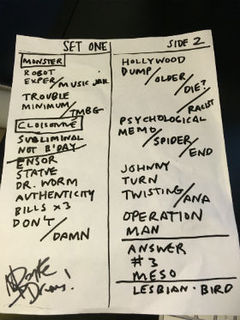 SET ONE
MONSTER
ROBOT
EXPER/MUSIC JAIL
TROUBLE
MINIMUM/TMBG
CLOISONNÉ
SUBLIMINAL
NOT BDAY
ENSOR
STATUE
DR. WORM
AUTHENTICITY
BILLS x3
DON'T/DAMN
SIDE 2
HOLLYWOOD
DUMP/OLDER/DIE?
RACIST
PSYCHOLOGICAL
MEMO/SPIDER/END
JOHNNY
TURN
TWISTING/ANA
OPERATION
MAN
ANSWER
#3
MESO
LESBIAN · BIRD